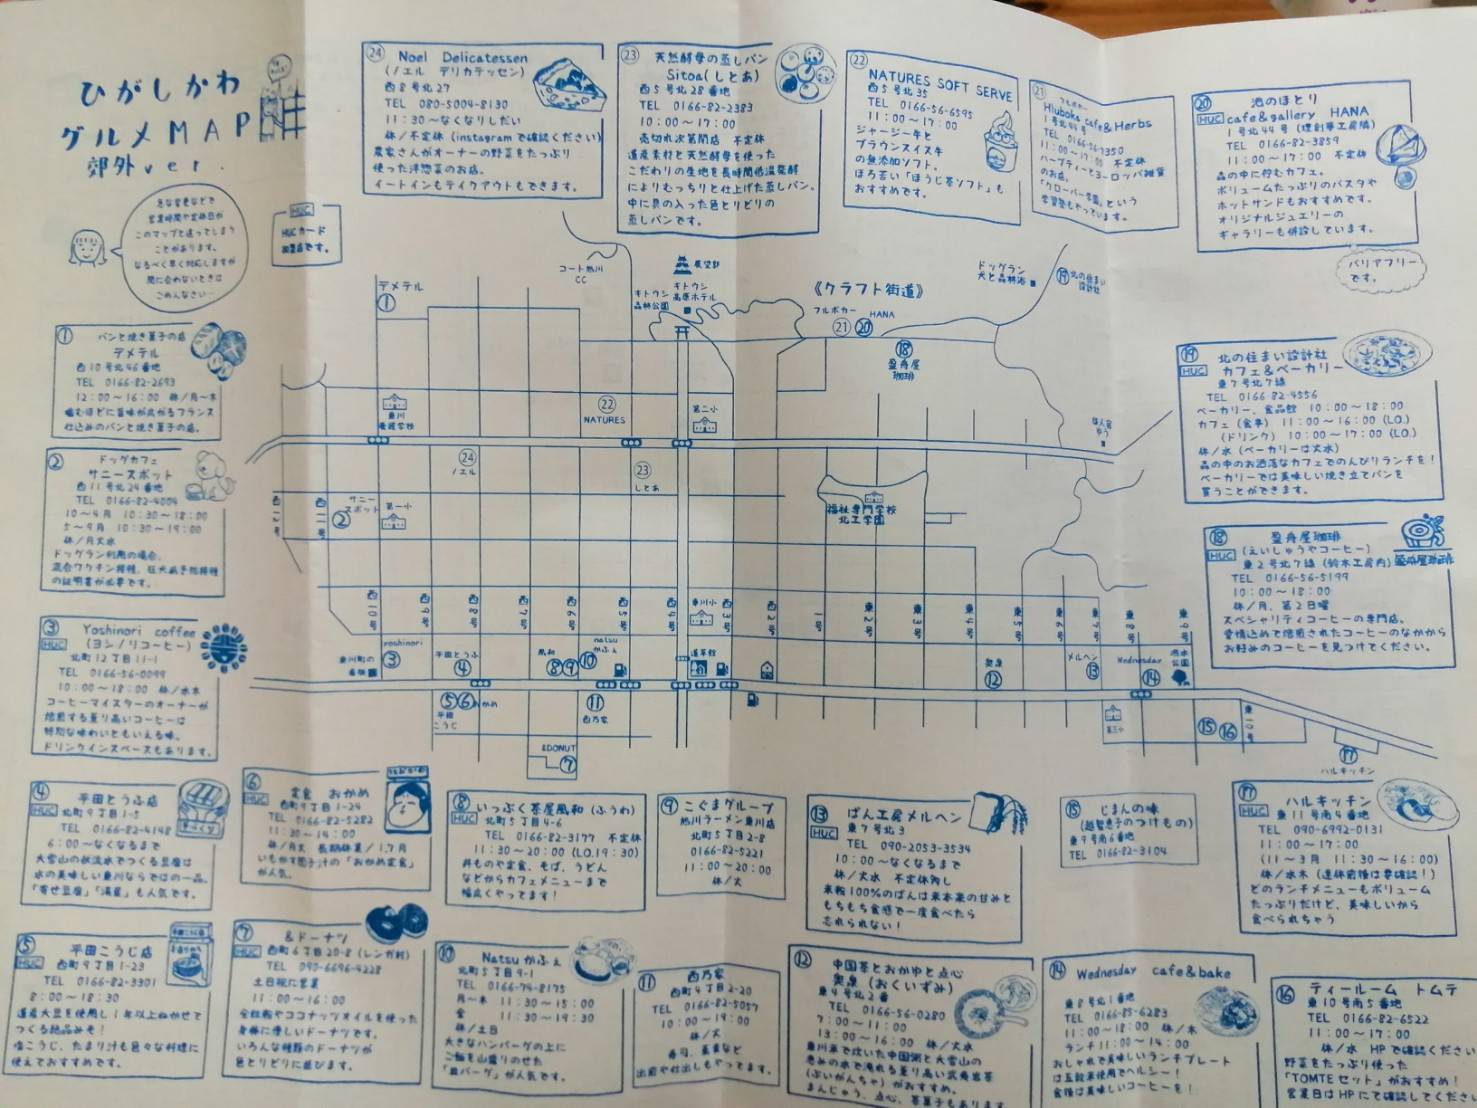 ひがしかわ
グルメMAP
郊外ver.
急な変更などで
営業時間や定休日が
このマップと違ってしまう
ことがあります。
なるべく早く対応しますが
間に合わないときは
ごめんなさい…
HUC
HUCカード
加盟店です。
㉔ Noel Delicatessen
(ノエル デリカテッセン)
西8号北27
TEL 080-5004-8130
11:30〜なくなりしだい
休/不定休(instagramで確認ください)
農家さんがオーナーの野菜をたっぷり
使った洋惣菜のお店。
イートインもテイクアウトもできます。
㉓ 天然酵母の蒸しパン
Sitoa(しとあ)
西5号北28番地
TEL 0166-82-2383
10:00〜17:00
売切れ次第閉店 不定休
道産素材と天然酵母を使った
こだわりの生地を長時間低温発酵
によりむっちりと仕上げた蒸しパン。
中に具の入った色とりどりの
蒸しパンです。
㉒ NATURES SOFT SERVE
西5号北35
TEL 0166-56-6595
11:00〜17:00
ジャージー牛と
ブラウンスイス牛
の無添加ソフト。
ほろ苦い「ほうじ茶ソフト」も
おすすめです。
㉑ フルボカー
Hluboka cafe&Herbs
1号北44号
TEL 0166-56-7350
11:00〜17:00 不定休
ハーブティーとヨーロッパ雑貨
のお店。
「クローバー学園」という
学習塾もやっています。
⑳ 池のほとり
HUC cafe&gallery HANA
1号北44号(理創夢工房隣)
TEL 0166-82-3859
11:00〜17:00 不定休
森の中に佇むカフェ。
ボリュームたっぷりのパスタや
ホットサンドもおすすめです。
オリジナルジュエリーの
ギャラリーも併設しています。
バリアフリー
です。
① パンと焼き菓子の店
デメテル
西10号北46番地
TEL 0166-82-2693
12:00〜16:00 休/月〜木
噛むほどに旨味が広がるフランス
仕込みのパンと焼き菓子の店。
② ドッグカフェ
サニースポット
西11号北24番地
TEL 0166-82-4004
10〜4月 10:30〜18:00
5〜9月 10:30〜19:00
休/月火水
ドッグラン利用の場合、
混合ワクチン接種、狂犬病予防接種
の証明書が必要です。
③ Yoshinori coffee
HUC (ヨシノリコーヒー)
北町12丁目11-1
TEL 0166-56-0099
10:00〜18:00 休/水木
コーヒーマイスターのオーナーが
焙煎する薫り高いコーヒーは
特別な味わいともいえる味。
ドリンクインスペースもあります。
④ 平田とうふ店
HUC 北町9丁目1-5
TEL 0166-82-4148
6:00〜なくなるまで
大雪山の伏流水でつくる豆腐は
水の美味しい東川ならではの一品。
「寄せ豆腐」「湯葉」も人気です。
⑤ 平田こうじ店
HUC 西町9丁目1-23
TEL 0166-82-3301
8:00〜18:30
道産大豆を使用し1年以上ねかせて
つくる絶品みそ!
塩こうじ、たまり汁も色々な料理に
使えておすすめです。
⑥ 定食 おかめ
HUC 西町9丁目1-24
TEL 0166-82-5282
11:30〜14:00
休/月火 長期休業/1,7月
いもかす団子汁の「おかめ定食」
が人気。
⑦ &ドーナツ
HUC 西町6丁目20-8(レンガ村)
TEL 090-6696-4228
土日祝に営業
11:00〜16:00
全粒粉やココナッツオイルを使った
身体に優しいドーナツです。
いろんな種類のドーナツが
色とりどりに並びます。
⑧ いっぷく茶屋風和(ふうわ)
HUC 北町5丁目4-6
TEL 0166-82-3177 不定休
11:30〜20:00(LO.19:30)
丼ものや定食、そば、うどん
などからカフェメニューまで
幅広くやってます!
⑨ こぐまグループ
旭川ラーメン東川店
北町5丁目2-8
0166-82-5221
11:00〜20:00
休/火
⑩ Natsuかふぇ
北町5丁目9-1
TEL 0166-74-8175
月〜木 11:30〜15:00
金 11:30〜19:30
休/土日
大きなハンバーグの上に
ご飯を山盛りのせた
「皿バーグ」が人気です。
⑪ 西乃家
西町4丁目2-20
TEL 0166-82-5057
10:00〜19:00
休/火
寿司、蕎麦など
出前や仕出しもやってます。
⑫ 中国茶とおかゆと点心
奥泉(おくいずみ)
東4号北2番
TEL 0166-56-0280
7:00〜11:00
13:00〜16:00 休/火水
東川米で炊いた中国粥と大雪山の
恵みの水で淹れる薫り高い武夷岩茶
(ぶいがんちゃ)がおすすめ。
まんじゅう、点心、茶菓子もあります
⑬ ぱん工房メルヘン
HUC 東7号北3
TEL 090-2053-3534
10:00〜なくなるまで
休/火水 不定休有り
米粉100%のぱんは米本来の甘みと
もちもち食感で一度食べたら
忘れられない!
⑭ Wednesday cafe&bake
東8号北1番地
TEL 0166-85-6283
11:00〜18:00 休/木
ランチ11:00〜14:00
おしゃれで美味しいランチプレート
は五穀米使用でヘルシー!
食後は美味しいコーヒーを!
⑮ じまんの味
(越智恵子のつけもの)
東9号南6番地
TEL 0166-82-3104
⑯ ティールーム トムテ
東10号南5番地
TEL 0166-82-6522
11:00〜17:00
休/水 HPで確認ください
野菜をたっぷり使った
「TOMTEセット」がおすすめ!
営業日はHPにて確認してください
⑰ ハルキッチン
HUC 東11号南4番地
TEL 090-6992-0131
11:00〜17:00
(11〜3月 11:30〜16:00)
休/水木(連休前後は要確認!)
どのランチメニューもボリューム
たっぷりだけど、美味しいから
食べられちゃう
⑱ 盈舟屋珈琲
HUC (えいしゅうやコーヒー)
東2号北7線(鈴木工房内)
TEL 0166-56-5199
10:00〜18:00
休/月、第2日曜
スペシャリティコーヒーの専門店。
愛情込めて焙煎されたコーヒーのなかから
お好みのコーヒーを見つけてください。
盈舟屋珈琲
⑲ 北の住まい設計社
HUC カフェ&ベーカリー
東7号北7線
TEL 0166-82-4556
ベーカリー、食品館 10:00〜18:00
カフェ(食事) 11:00〜16:00(LO.)
(ドリンク) 10:00〜17:00(LO.)
休/水(ベーカリーは火水)
森の中のお洒落なカフェでのんびりランチを!
ベーカリーでは美味しい焼き立てパンを
買うことができます。
デメテル
①
コート旭川
CC
展望郭
キトウシ
森林公園
キトウシ
高原ホテル
《クラフト街道》
フルボカー
㉑
HANA
⑳
ドッグラン
犬と森林浴
⑲ 北の住まい
設計社
⑱
盈舟屋
珈琲
東川
養護学校
㉒
NATURES
第二小
㉔
ノエル
㉓
しとあ
サニー
スポット
②
第一小
福祉専門学校
北工学園
西12号
西11号
西10号
西9号
西8号
西7号
西6号
西5号
西4号
西3号
西2号
1号
東2号
東3号
東4号
東5号
東6号
東7号
東8号
東9号
東10号
東川小
yoshinori
③
平田とうふ
④
風和
⑧⑨
natsu
かふぇ
⑩
道草館
奥泉
⑫
メルヘン
⑬
Wednesday
⑭
湧水
公園
⑤⑥おかめ
平田
こうじ
⑪
西乃家
&DONUT
⑦
第三小
⑮⑯
⑰
ハルキッチン